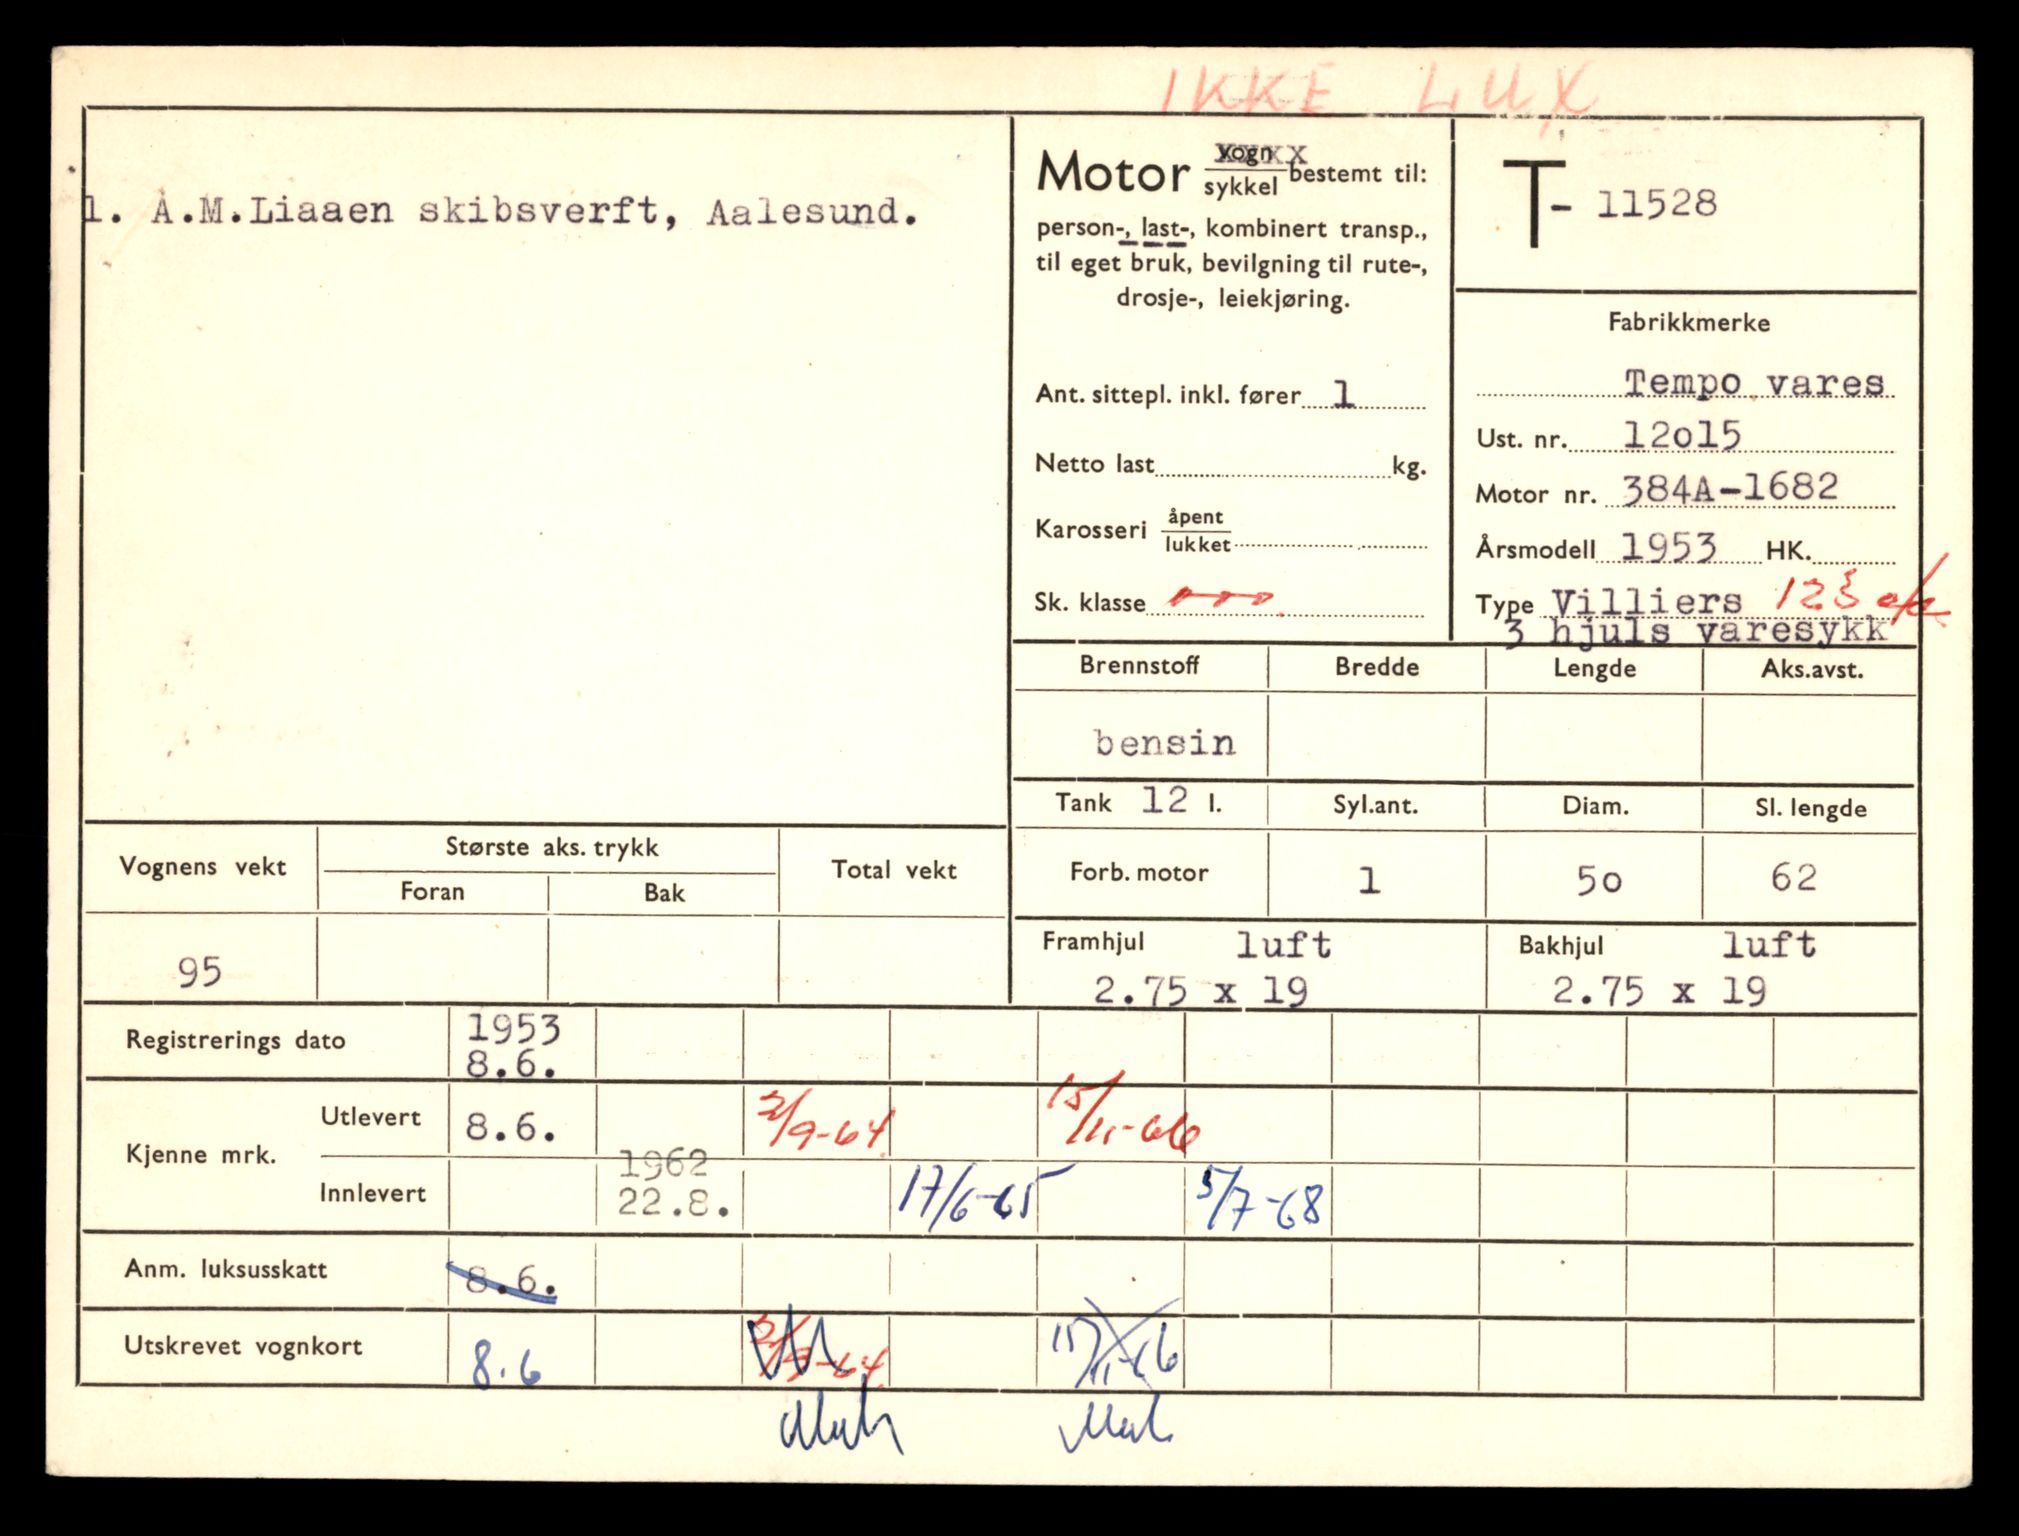 IKKE LUX
1. A.M.Liaaen skibsverft, Aalesund.
Motor vogn/sykkel bestemt til:
person-, last-, kombinert transp.,
til eget bruk, bevilgning til rute-,
drosje-, leiekjøring.
Ant. sittepl. inkl. fører 1
Netto last kg.
Karosseri åpent/lukket
Sk. klasse
T- 11528
Fabrikkmerke
Tempo vares
Ust. nr. 12o15
Motor nr. 384A-1682
Årsmodell 1953 HK.
Type Villiers 123
3 hjuls varesykk
Brennstoff Bredde Lengde Aks.avst.
bensin
Tank 12 l. Syl.ant. Diam. Sl. lengde
Forb. motor 1 5o 62
Framhjul luft Bakhjul luft
2.75 x 19 2.75 x 19
Vognens vekt Største aks. trykk Total vekt
Foran Bak
95
Registrerings dato 1953
8.6.
Kjenne mrk.
Utlevert 8.6. 2/9-64 15/11-66
Innlevert 1962
22.8. 17/6-65 5/7-68
Anm. luksusskatt 8.6.
Utskrevet vognkort 8.6 2/9-64 15/11-66